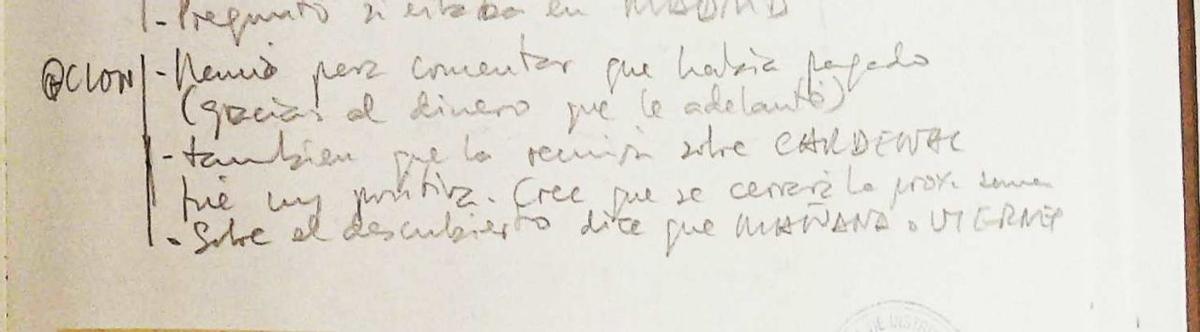 - Preguntó si estaba en MADRID
CION - Llamó para comentar que había pagado
(gracias al dinero que le adelantó)
- también que la reunión sobre CARDENAL
fué muy positiva. Cree que se cerrará la prox. semana
- Sobre el descubierto dice que MAÑANA o VIERNES
DE INSTR